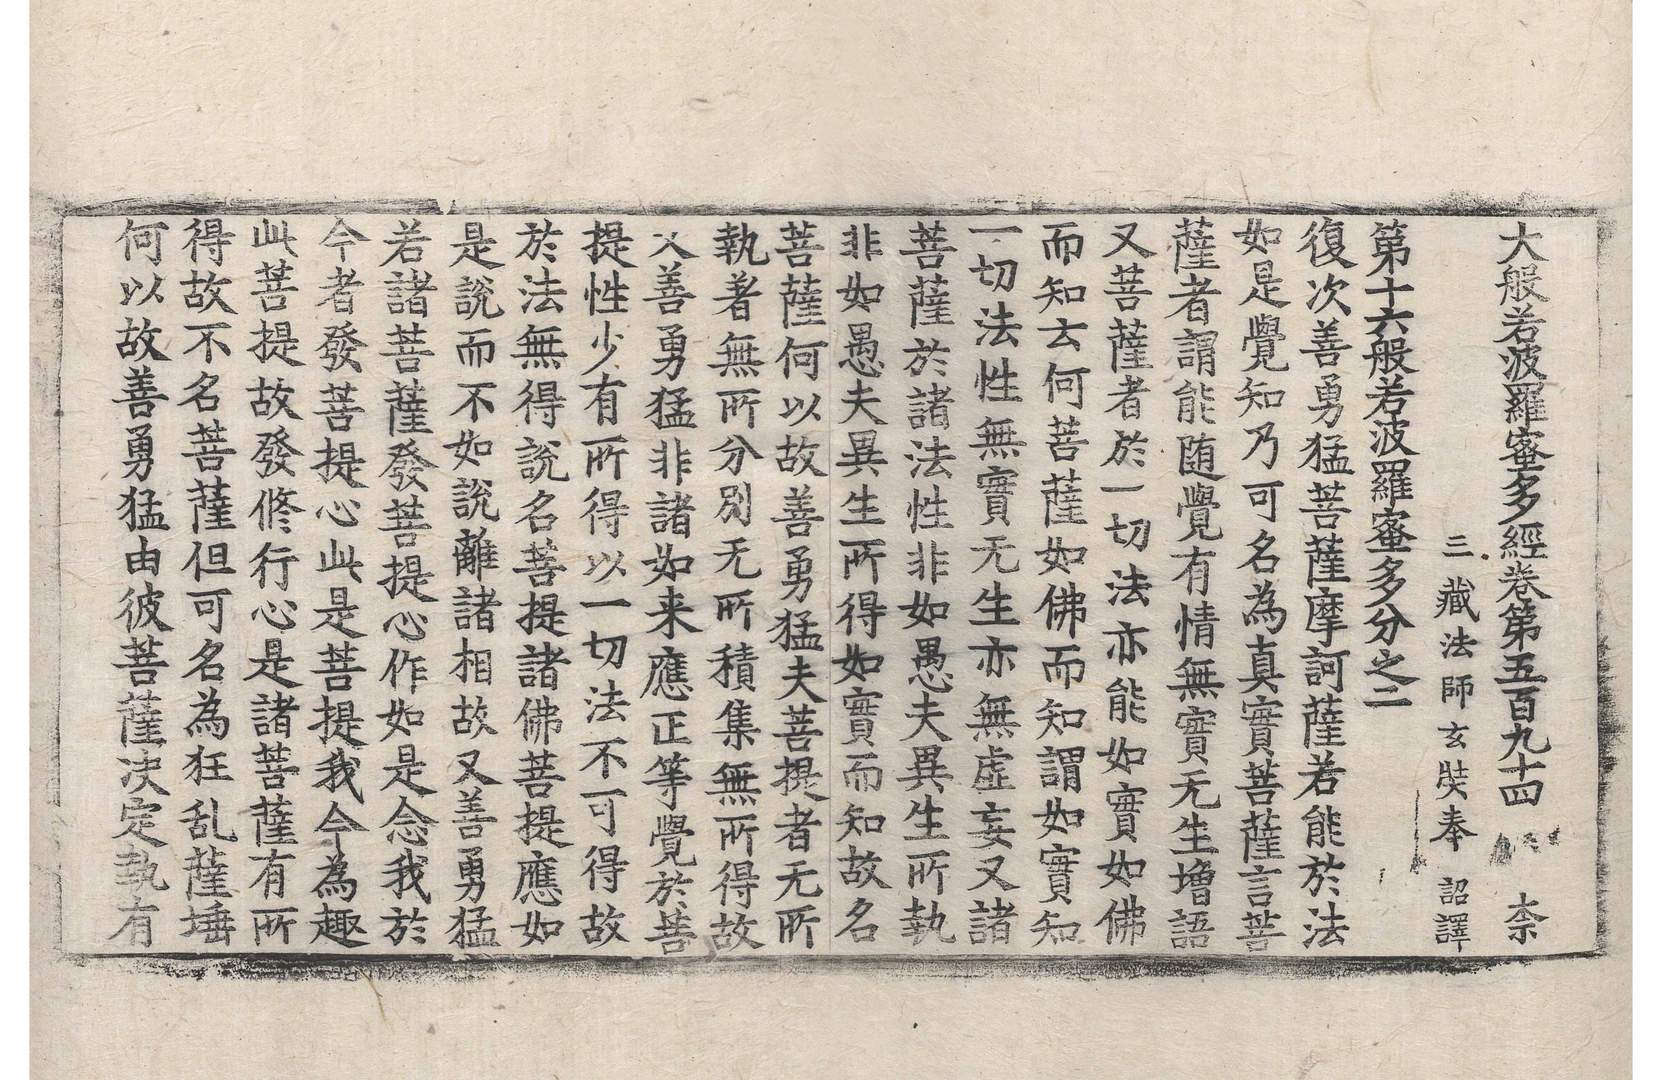 大般若波羅蜜多經卷第五百九十四 柰
三藏法師玄奘奉 詔譯
第十六般若波羅蜜多分之二
復次善勇猛菩薩摩訶薩若能於法
如是覺知乃可名為真實菩薩言菩
薩者謂能随覺有情無實无生增語
又菩薩者於一切法亦能如實如佛
而知云何菩薩如佛而知謂如實知
一切法性無實无生亦無虛妄又諸
菩薩於諸法性非如愚夫異生所執
非如愚夫異生所得如實而知故名
菩薩何以故善勇猛夫菩提者无所
執著無所分別无所積集無所得故
又善勇猛非諸如来應正等覺於菩
提性少有所得以一切法不可得故
於法無得說名菩提諸佛菩提應如
是說而不如說離諸相故又善勇猛
若諸菩薩發菩提心作如是念我於
今者發菩提心此是菩提我今為趣
此菩提故發修行心是諸菩薩有所
得故不名菩薩但可名為狂乱薩埵
何以故善勇猛由彼菩薩决定執有